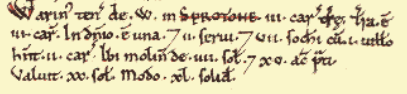 Warin' ten' de. W. in SPROTONE. iii. car' t'ræ. T'ra. ē
iii. car'. In dñio. ē una. ⁊ ii. serui. ⁊ vii. soch'i cū. i. uillo
hñt. ii. car'. Ibi molin' de. viii. sol'. ⁊ xx. ac' p'ti
Valuit. xx. sol'. Modo. xl. solid'.